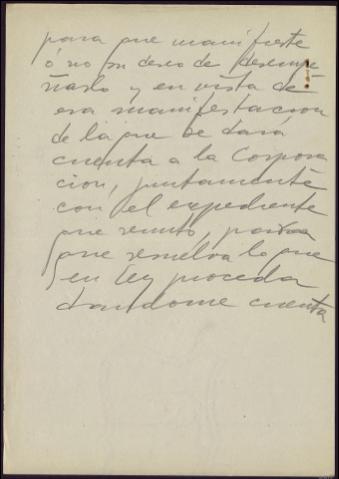 para que manifieste
ó no su deseo de desempe
ñarlo y en vista de
esa manifestacion
de la que se dará
cuenta a la Corpora
cion, juntamente
con el expediente
que remito, para
que resuelva lo que
en ley proceda
dandome cuenta